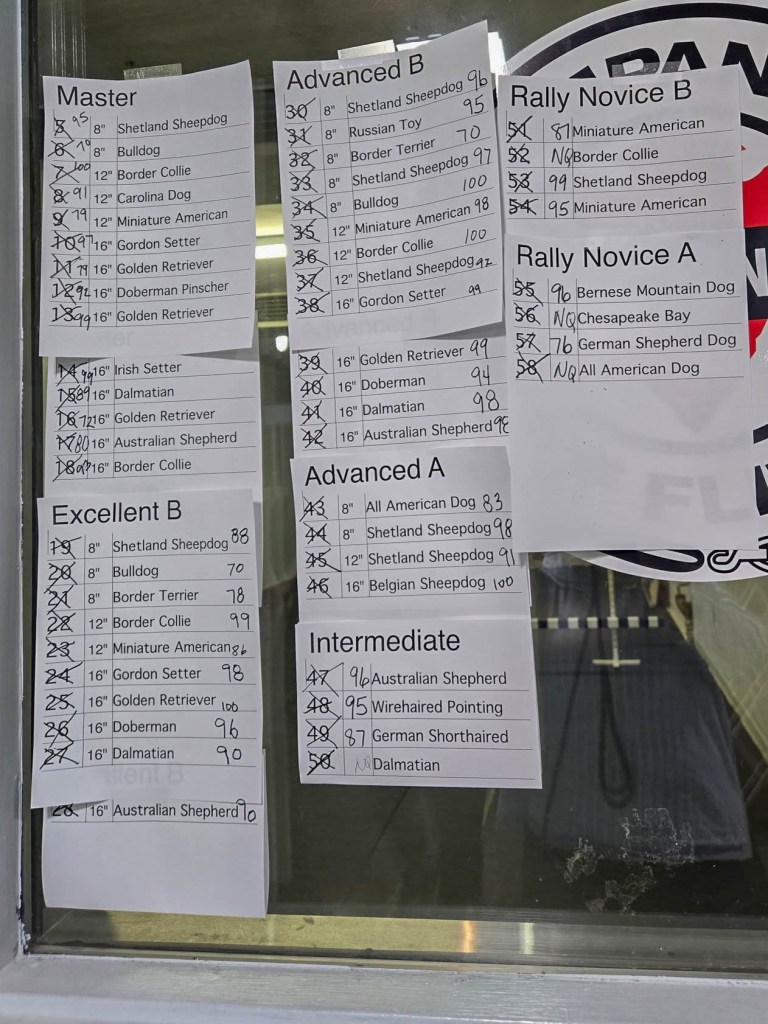 Master
5 95 8" Shetland Sheepdog
6 70 8" Bulldog
7 100 12" Border Collie
8 91 12" Carolina Dog
9 79 12" Miniature American
10 97 16" Gordon Setter
11 79 16" Golden Retriever
12 92 16" Doberman Pinscher
13 99 16" Golden Retriever
14 99 16" Irish Setter
15 89 16" Dalmatian
16 72 16" Golden Retriever
17 80 16" Australian Shepherd
18 16" Border Collie
Excellent B
19 8" Shetland Sheepdog 88
20 8" Bulldog 70
21 8" Border Terrier 78
22 12" Border Collie 99
23 12" Miniature American 86
24 16" Gordon Setter 98
25 16" Golden Retriever 100
26 16" Doberman 96
27 16" Dalmatian 90
28 16" Australian Shepherd 90
Advanced B
30 8" Shetland Sheepdog 96
31 8" Russian Toy 95
32 8" Border Terrier 70
33 8" Shetland Sheepdog 97
34 8" Bulldog 100
35 12" Miniature American 98
36 12" Border Collie 100
37 12" Shetland Sheepdog 92
38 16" Gordon Setter 99
39 16" Golden Retriever 99
40 16" Doberman 94
41 16" Dalmatian 98
42 16" Australian Shepherd
Advanced A
43 8" All American Dog 83
44 8" Shetland Sheepdog 98
45 12" Shetland Sheepdog 91
46 16" Belgian Sheepdog 100
Intermediate
47 96 Australian Shepherd
48 95 Wirehaired Pointing
49 87 German Shorthaired
50 NQ Dalmatian
Rally Novice B
51 87 Miniature American
52 NQ Border Collie
53 99 Shetland Sheepdog
54 95 Miniature American
Rally Novice A
55 96 Bernese Mountain Dog
56 NQ Chesapeake Bay
57 76 German Shepherd Dog
58 NQ All American Dog